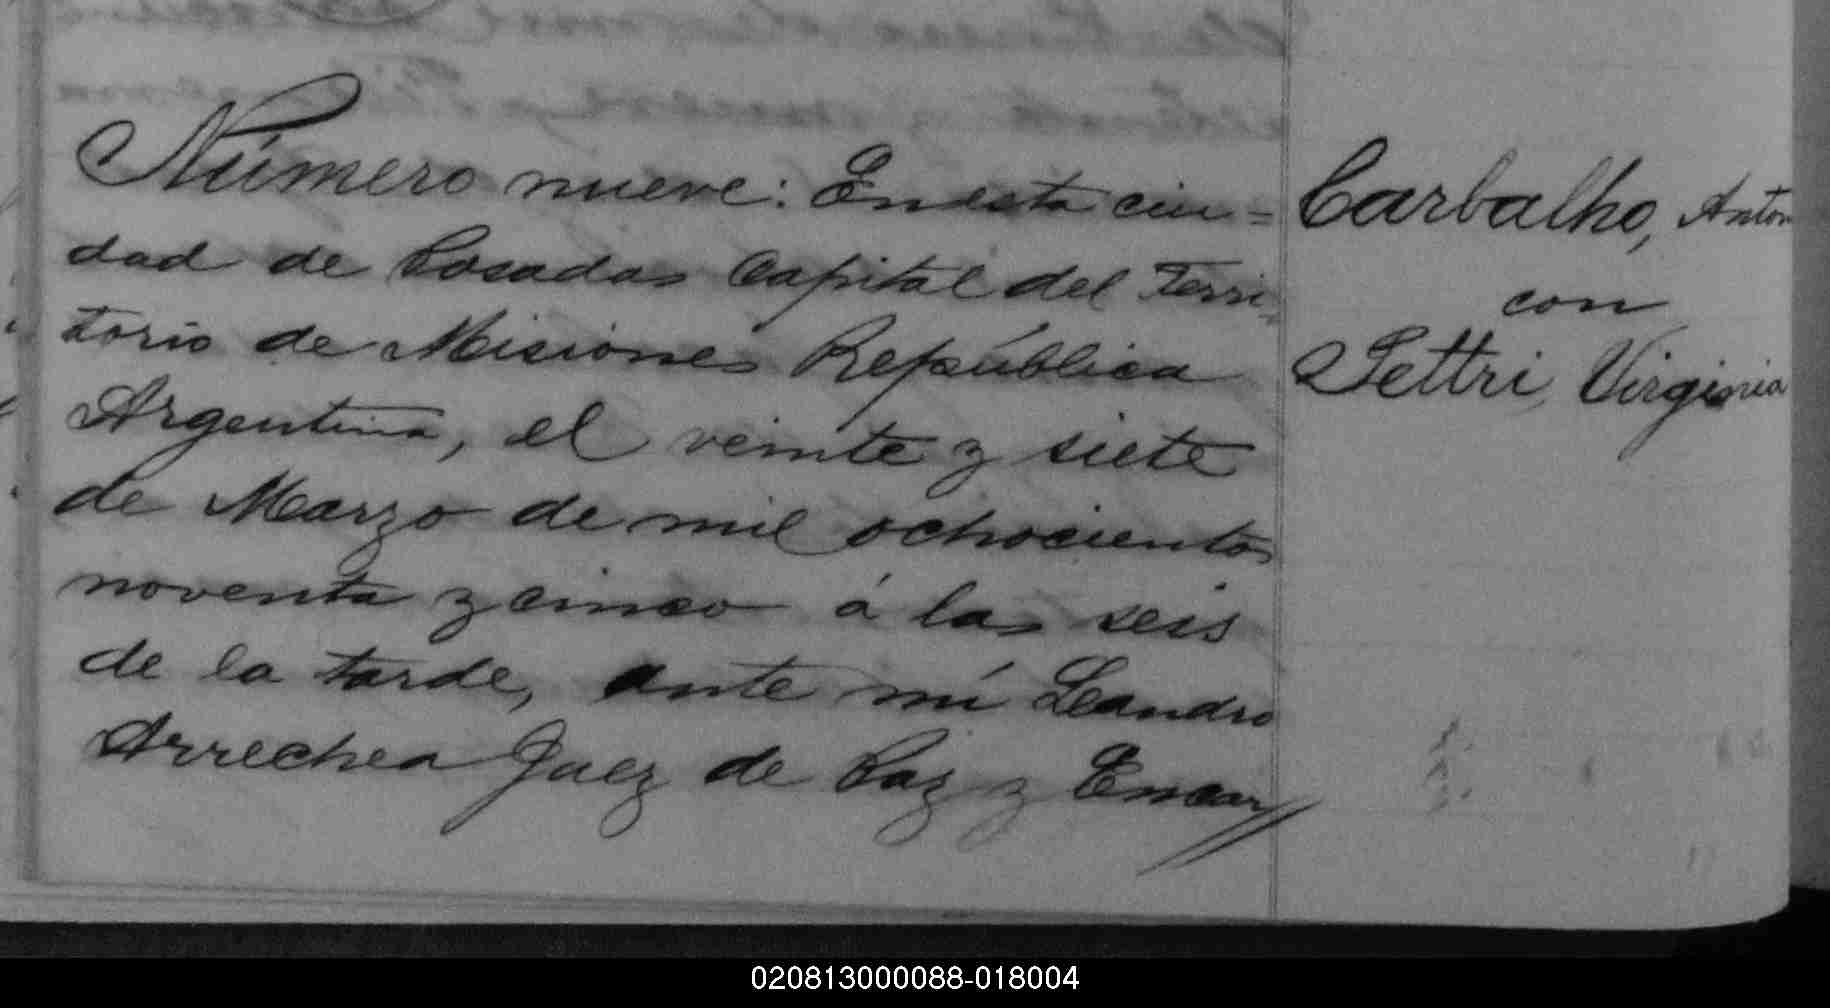 Número nueve: En esta ciu=
dad de Posadas Capital del Terri-
torio de Misiones República
Argentina, el veinte y siete
de Marzo de mil ochocientos
noventa y cinco á las seis
de la tarde, ante mí Leandro
Arrechea Juez de Paz y Encar
Carbalho, Anton
con
Pettri, Virginia
020813000088-018004